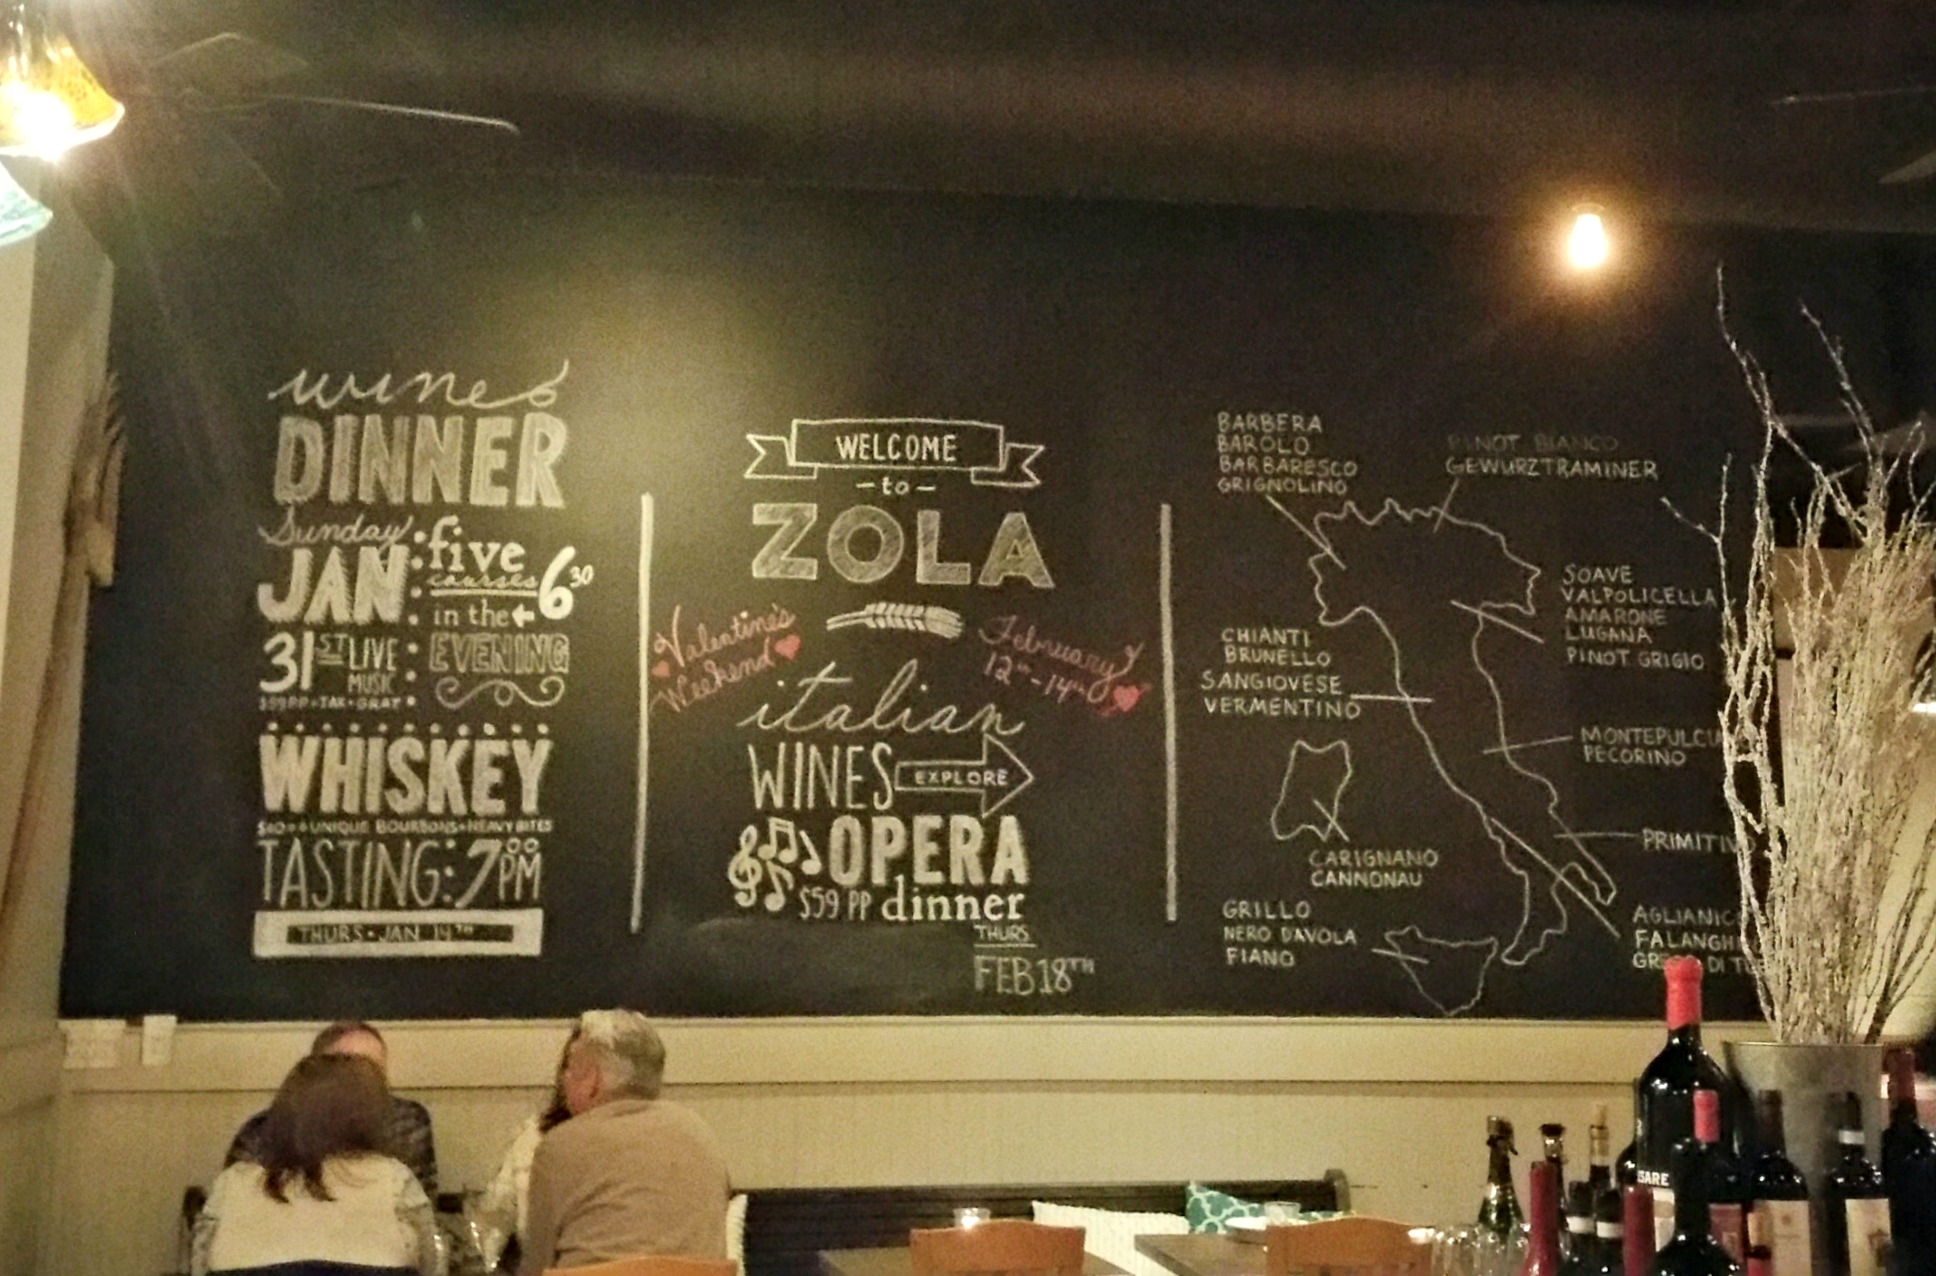 wines
DINNER
Sunday
JAN
31ST LIVE
MUSIC
$59PP + TAX + GRAT
five
courses 6 30
in the
EVENING
WHISKEY
UNIQUE BOURBONS + HEAVY BITES
TASTING: 7 00 PM
THURS • JAN 14TH
WELCOME
-to-
ZOLA
Valentine's
Weekend
February
12th-14th
italian
WINES EXPLORE
OPERA
$59 PP dinner
THURS
FEB 18TH
BARBERA
BAROLO
BARBARESCO
GRIGNOLINO
PINOT BIANCO
GEWURZTRAMINER
SOAVE
VALPOLICELLA
AMARONE
LUGANA
PINOT GRIGIO
CHIANTI
BRUNELLO
SANGIOVESE
VERMENTINO
MONTEPULCIA
PECORINO
PRIMITIV
CARIGNANO
CANNONAU
GRILLO
NERO D'AVOLA
FIANO
AGLIANIC
FALANGH
DI